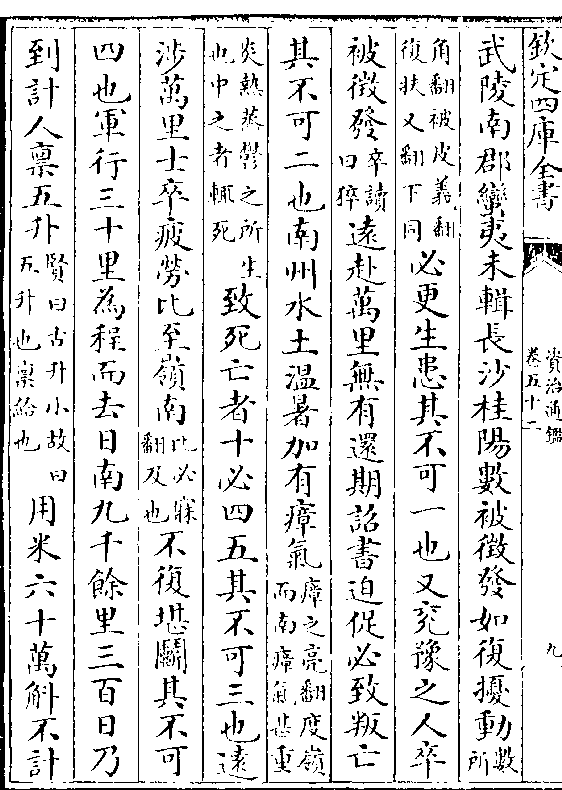 欽定四庫全書
資治通鑑
卷五十二
九
武陵南郡蠻夷未輯長沙桂陽數被徵發如復擾動數所
角翻被皮義翻復扶又翻下同必更生患其不可一也又兖豫之人卒
被徵發卒讀曰猝遠赴萬里無有還期詔書迫促必致叛亡
其不可二也南州水土温暑加有瘴氣瘴之亮翻度嶺而南瘴氣甚重
炎熱蒸鬱之所生也中之者輒死致死亡者十必四五其不可三也遠
涉萬里士卒疲勞比至嶺南比必寐翻及也不復堪鬭其不可
四也軍行三十里為程而去日南九千餘里三百日乃
到計人稟五升賢曰古升小故曰五升也稟給也用米六十萬斛不計